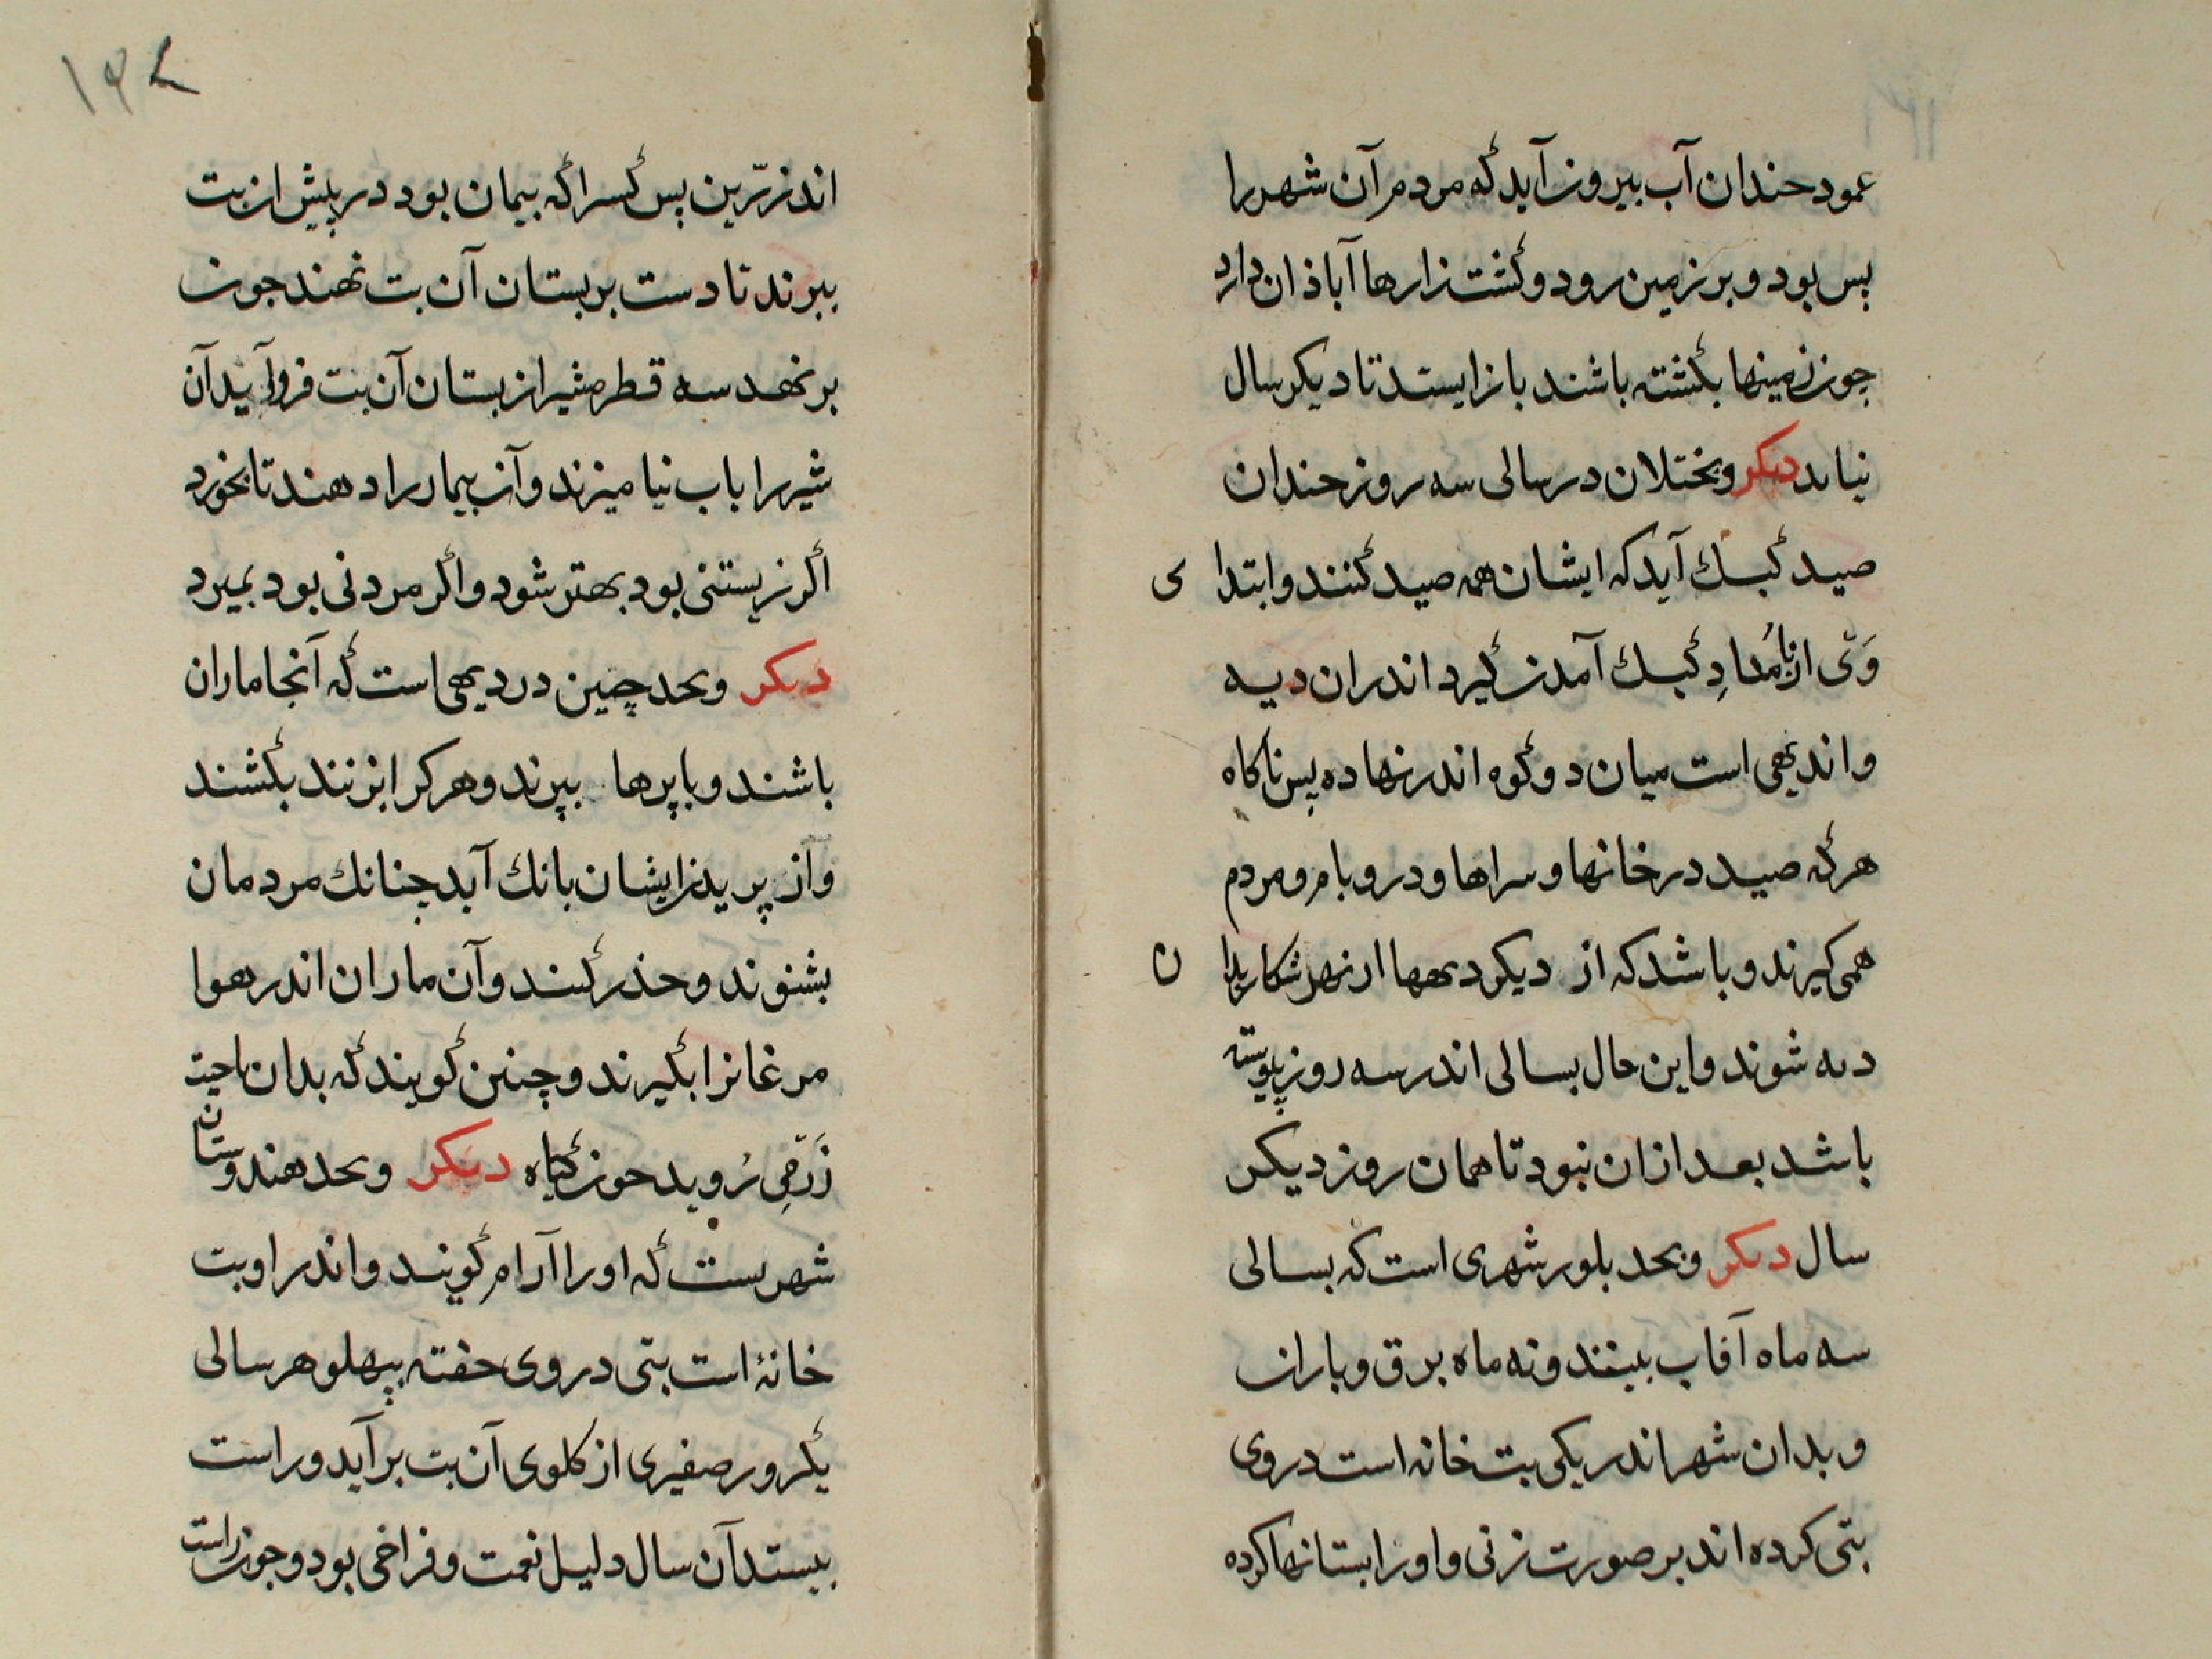 عمود حندان آب بیرون آید که مردم آن شهر را
بس بود و بر زمین رود و کشت زارها آباذان دارد
جون زمینها بکشته باشند باز ایستد تا دیکر سال
نیاید دیکر و بختلان در سالی سه روز حندان
صید کبک آید که ایشان همه صید کنند و ابتدا ی
وی از بامداد کبک آمدن کیرد اندران دیه
واندیهی است میان دو کوه اندر نهاده بس ناکاه
هر که صید در خانها و سراها و در و بام و مردم
همی کیرند و باشد که از دیکر دیهها از بهر شکار بدان
دیه شوند و این حال بسالی اندر سه روز پیوسته
باشد بعد ازان نبود تا همان روز دیکر
سال دیکر و بحد بلور شهری است که بسالی
سه ماه آفتاب بینند و نه ماه برق و باران
و بدان شهر اندر یکی بت خانه است در وی
بتی کرده اند بر صورت زنی و او را بستانها کرده
۱۶۸
اند زرین بس کسرا که بیمار بود در پیش ان بت
ببرند تا دست بر بستان آن بت نهند جون
بر نهد سه قطره شیر از بستان آن بت فروآید آن
شیر را باب نیامیزند و آن بیمار را دهند تا بخورد
اکر زیستنی بود بهتر شود و اکر مردنی بود بمیرد
دیکر و بحد چین در دیهی است که آنجا ماران
باشند و با پرها بپرند و هر کرا بزنند بکشند
و از پریدن ایشان بانک آید جنانک مردمان
بشنوند و حذر کنند و آن ماران اندر هوا
مرغانرا بکیرند و چنین کویند که بدان ناحیت
زر می روید جون کیاه دیکر و بحد هندوستان
شهریست که او را آرام کویند و اندر او بت
خانهٔ است بتی در وی خفته بپهلو هر سالی
یکروز صفیری از کلوی آن بت بر آید و راست
بیستد آن سال دلیل نعمت و فراخی بود و جون راست